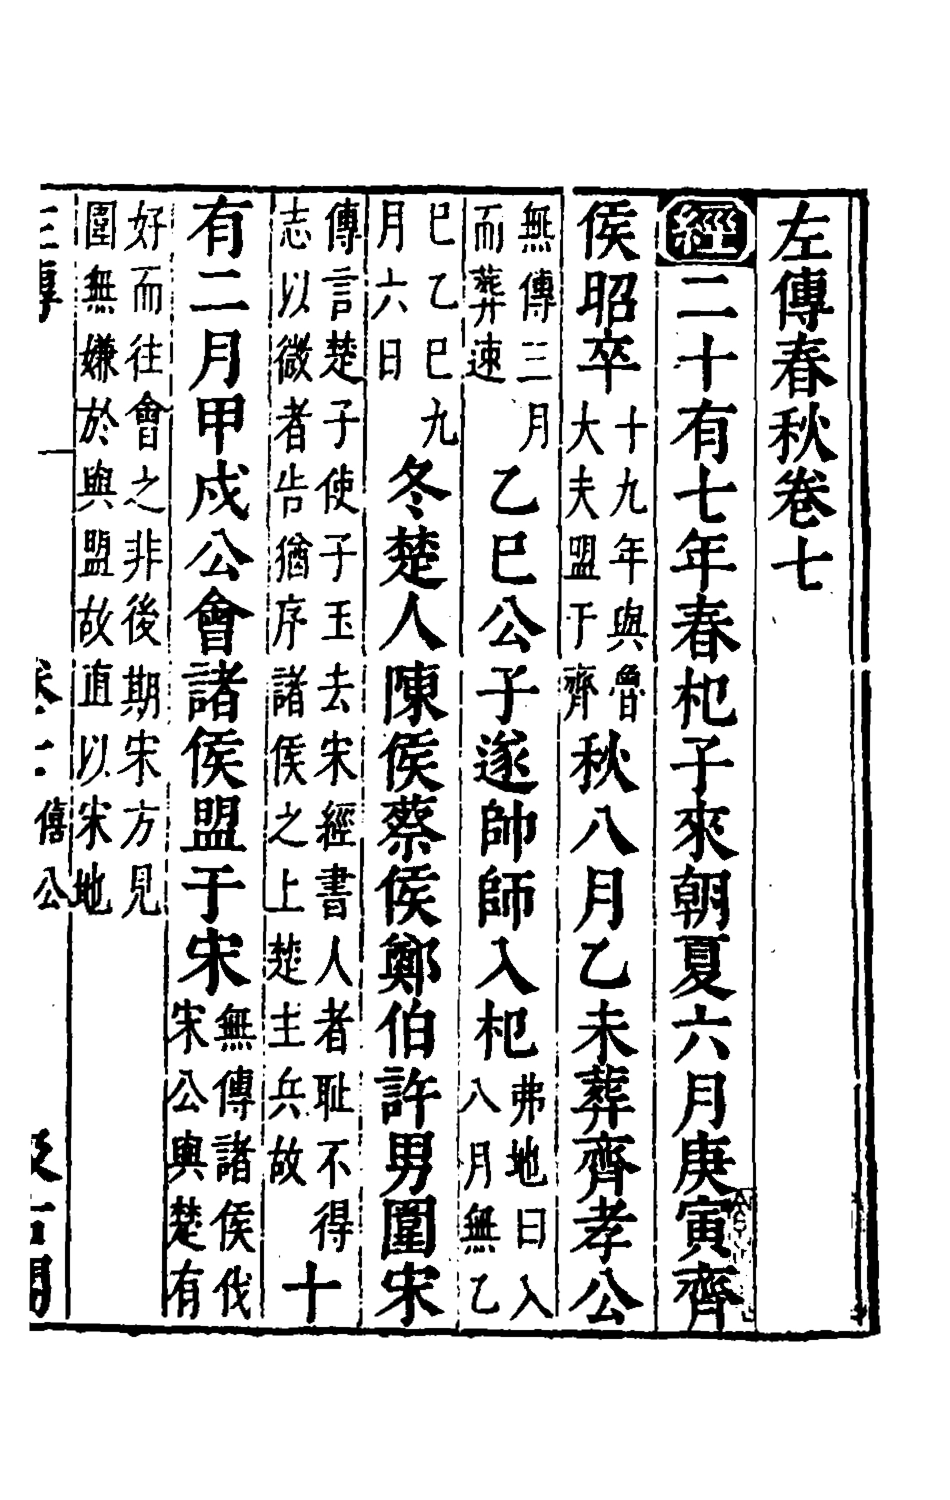 左傳春秋卷七
經二十有七年春杞子來朝夏六月庚寅齊
侯昭卒十九年與魯大夫盟于齊秋八月乙未葬齊孝公
無傳三月而葬速乙巳公子遂帥師入杞弗地曰入八月無乙
巳乙巳九月六日冬楚人陳侯蔡侯鄭伯許男圍宋
傳言楚子使子玉去宋經書人者耻不得志以微者告猶序諸侯之上楚主兵故十
有二月甲戌公會諸侯盟于宋無傳諸侯伐宋公與楚有
好而往會之非後期宋方見圍無嫌於與盟故直以宋地
僖公